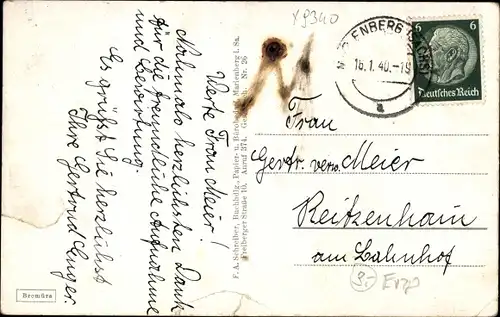 Werte Frau Meier!
Nochmals herzlichsten Dank
für die freundliche Aufnahme
und Bewirtung.
Es grüßt Sie herzlichst
Ihre Gertrud Unger.
F. A. Schreiber, Buchhdlg., Papier- u. Bürobedarf, Marienberg i. Sa.
Freiberger Straße 10. Anruf 374. Nr. 26
Bromüra
X9340
MARIENBERG (SACHS)
16.1.40.-19
a
6 6
Deutsches Reich
Frau
Gertr. verw. Meier
Reitzenhain
am Bahnhof